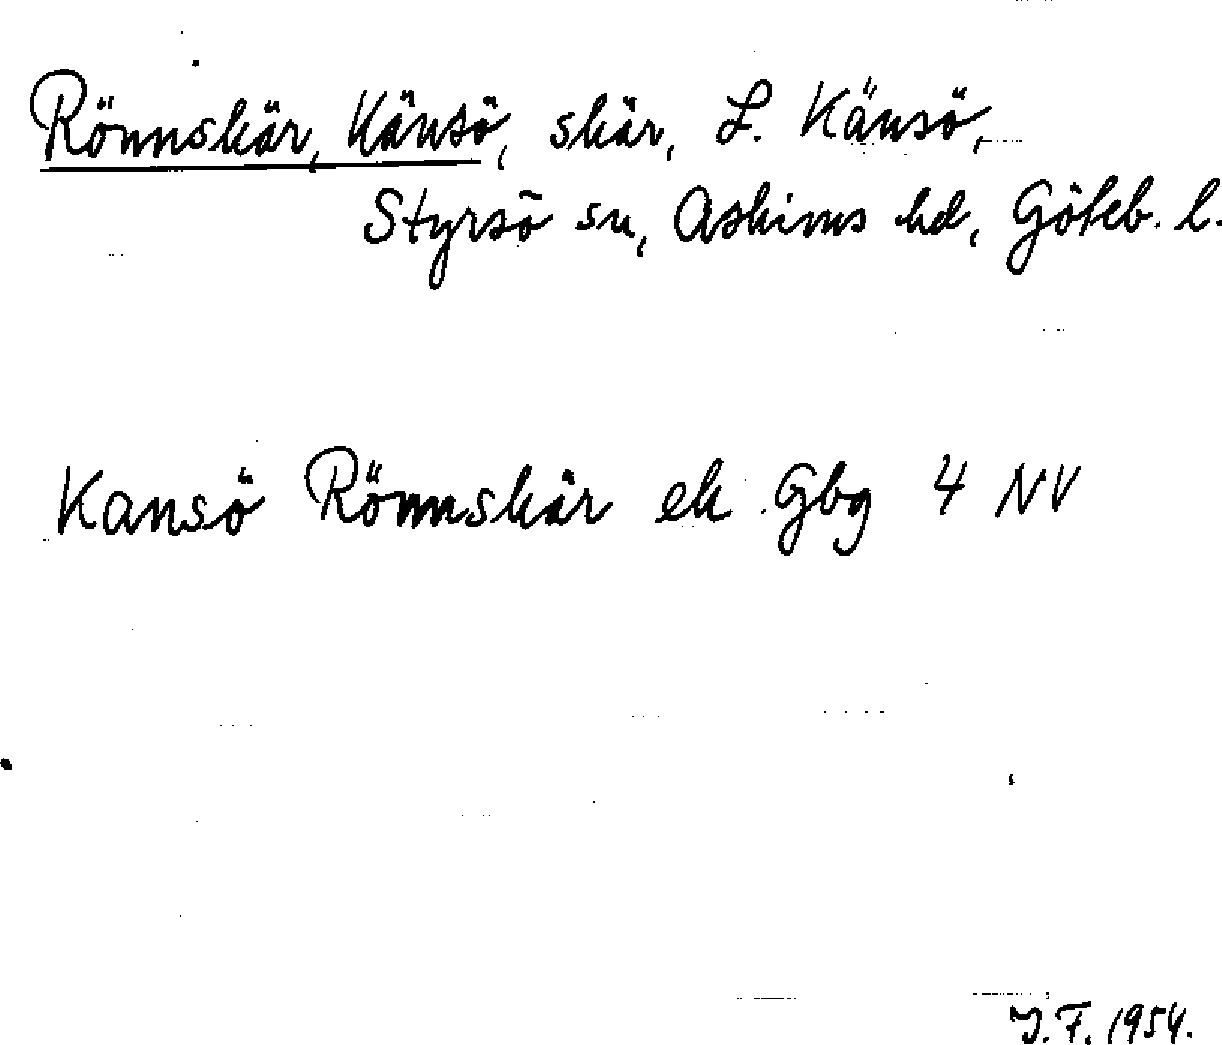 Rönnskär, Känsö, skär, L. Känsö,
Styrsö sn, Askims hd, Göteb. l.
Kansö Rönnskär ek Gbg 4 NV
J. F. 1954.